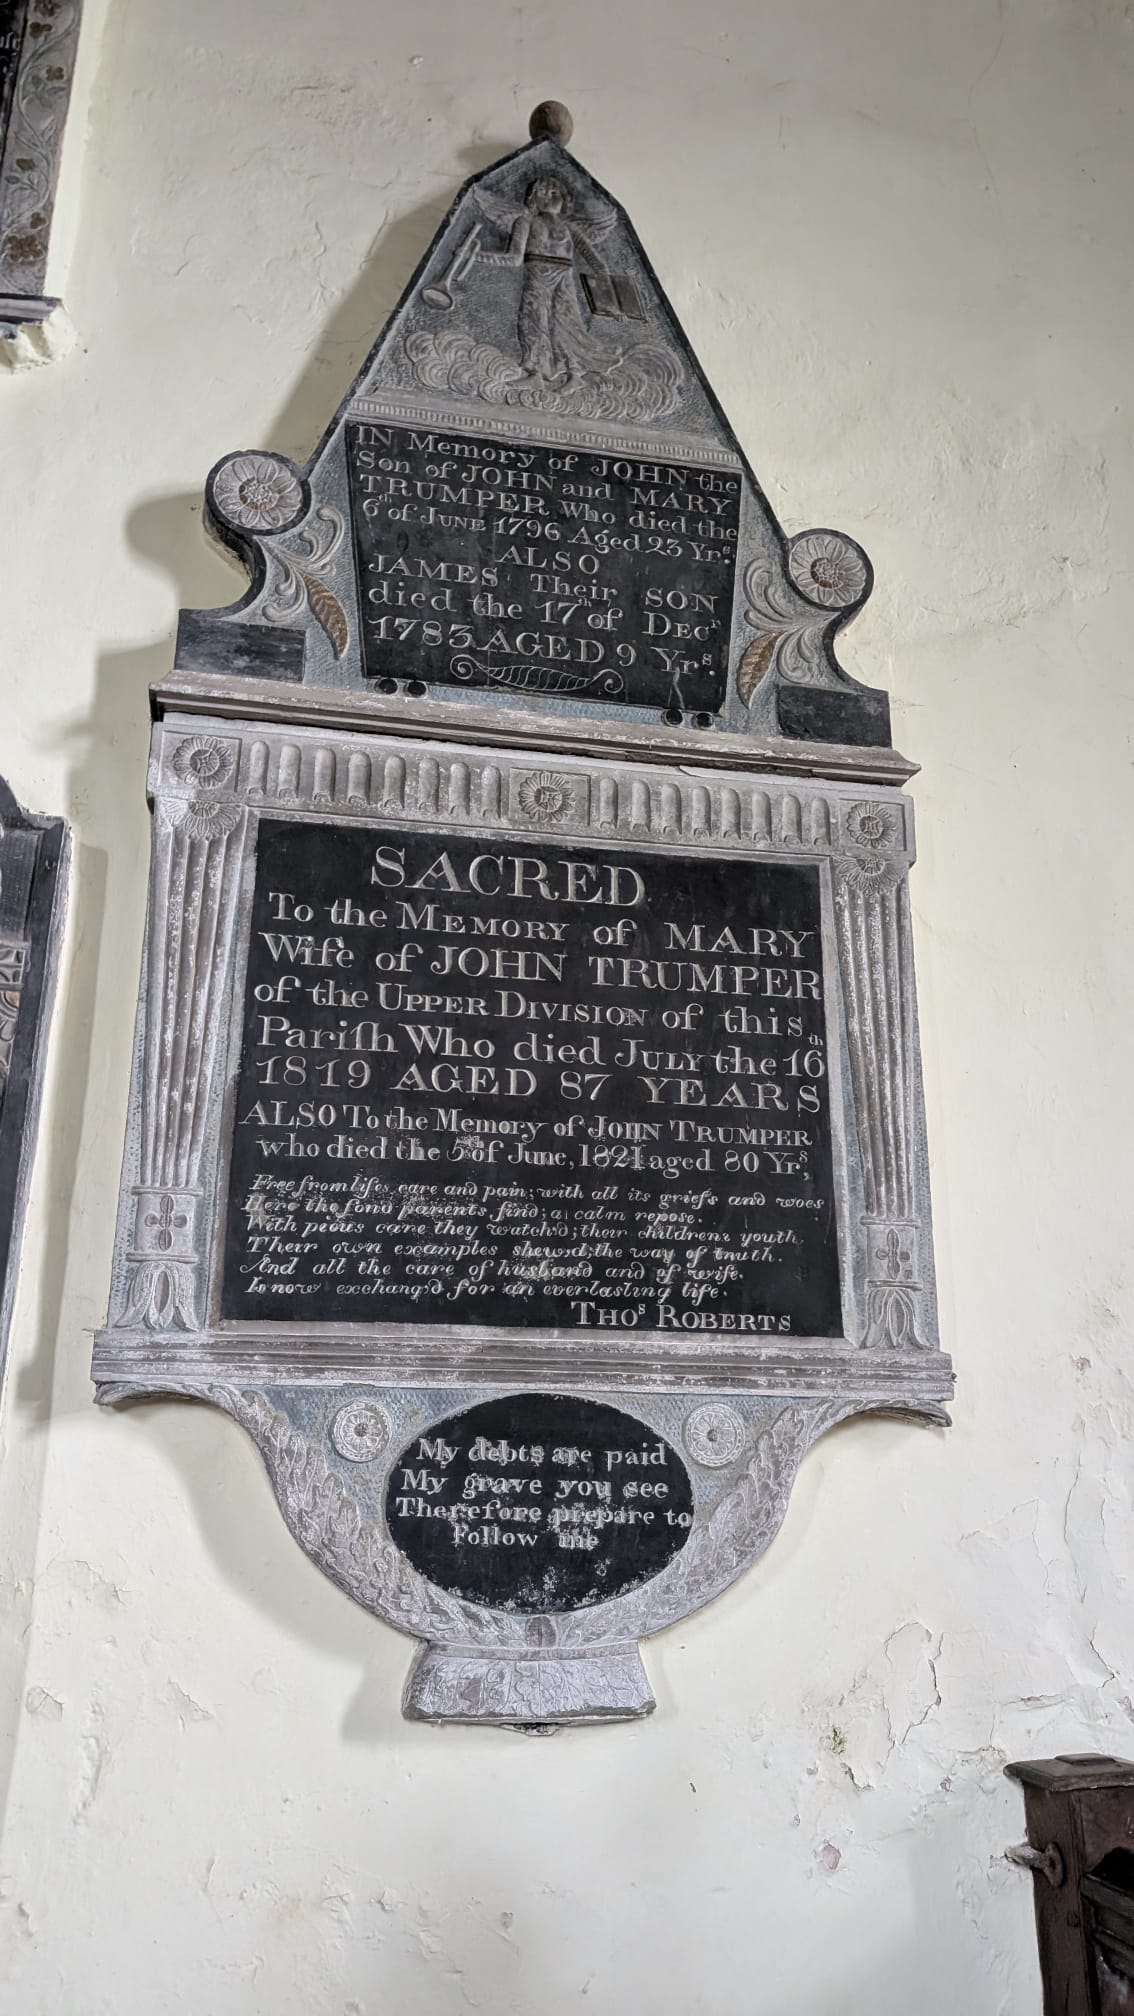 IN Memory of JOHN the
Son of JOHN and MARY
TRUMPER Who died the
6th of JUNE 1796 Aged 23 Yrs.
ALSO
JAMES Their SON
died the 17th of DECr
1783 AGED 9 Yrs.
SACRED
To the MEMORY of MARY
Wife of JOHN TRUMPER
of the UPPER DIVISION of this
Pariſh Who died JULY the 16th
1819 AGED 87 YEARS
ALSO To the Memory of JOHN TRUMPER
who died the 5th of June, 1821 aged 80 Yrs,
Free from lifes care and pain; with all its griefs and woes
Here the fond parents find; a calm repose.
With pious care they watch'd; their childrens youth,
Their own examples shew'd; the way of truth.
And all the care of husband and of wife.
Is now exchang'd for an everlasting life.
THOs ROBERTS
My debts are paid
My grave you see
Therefore prepare to
Follow me